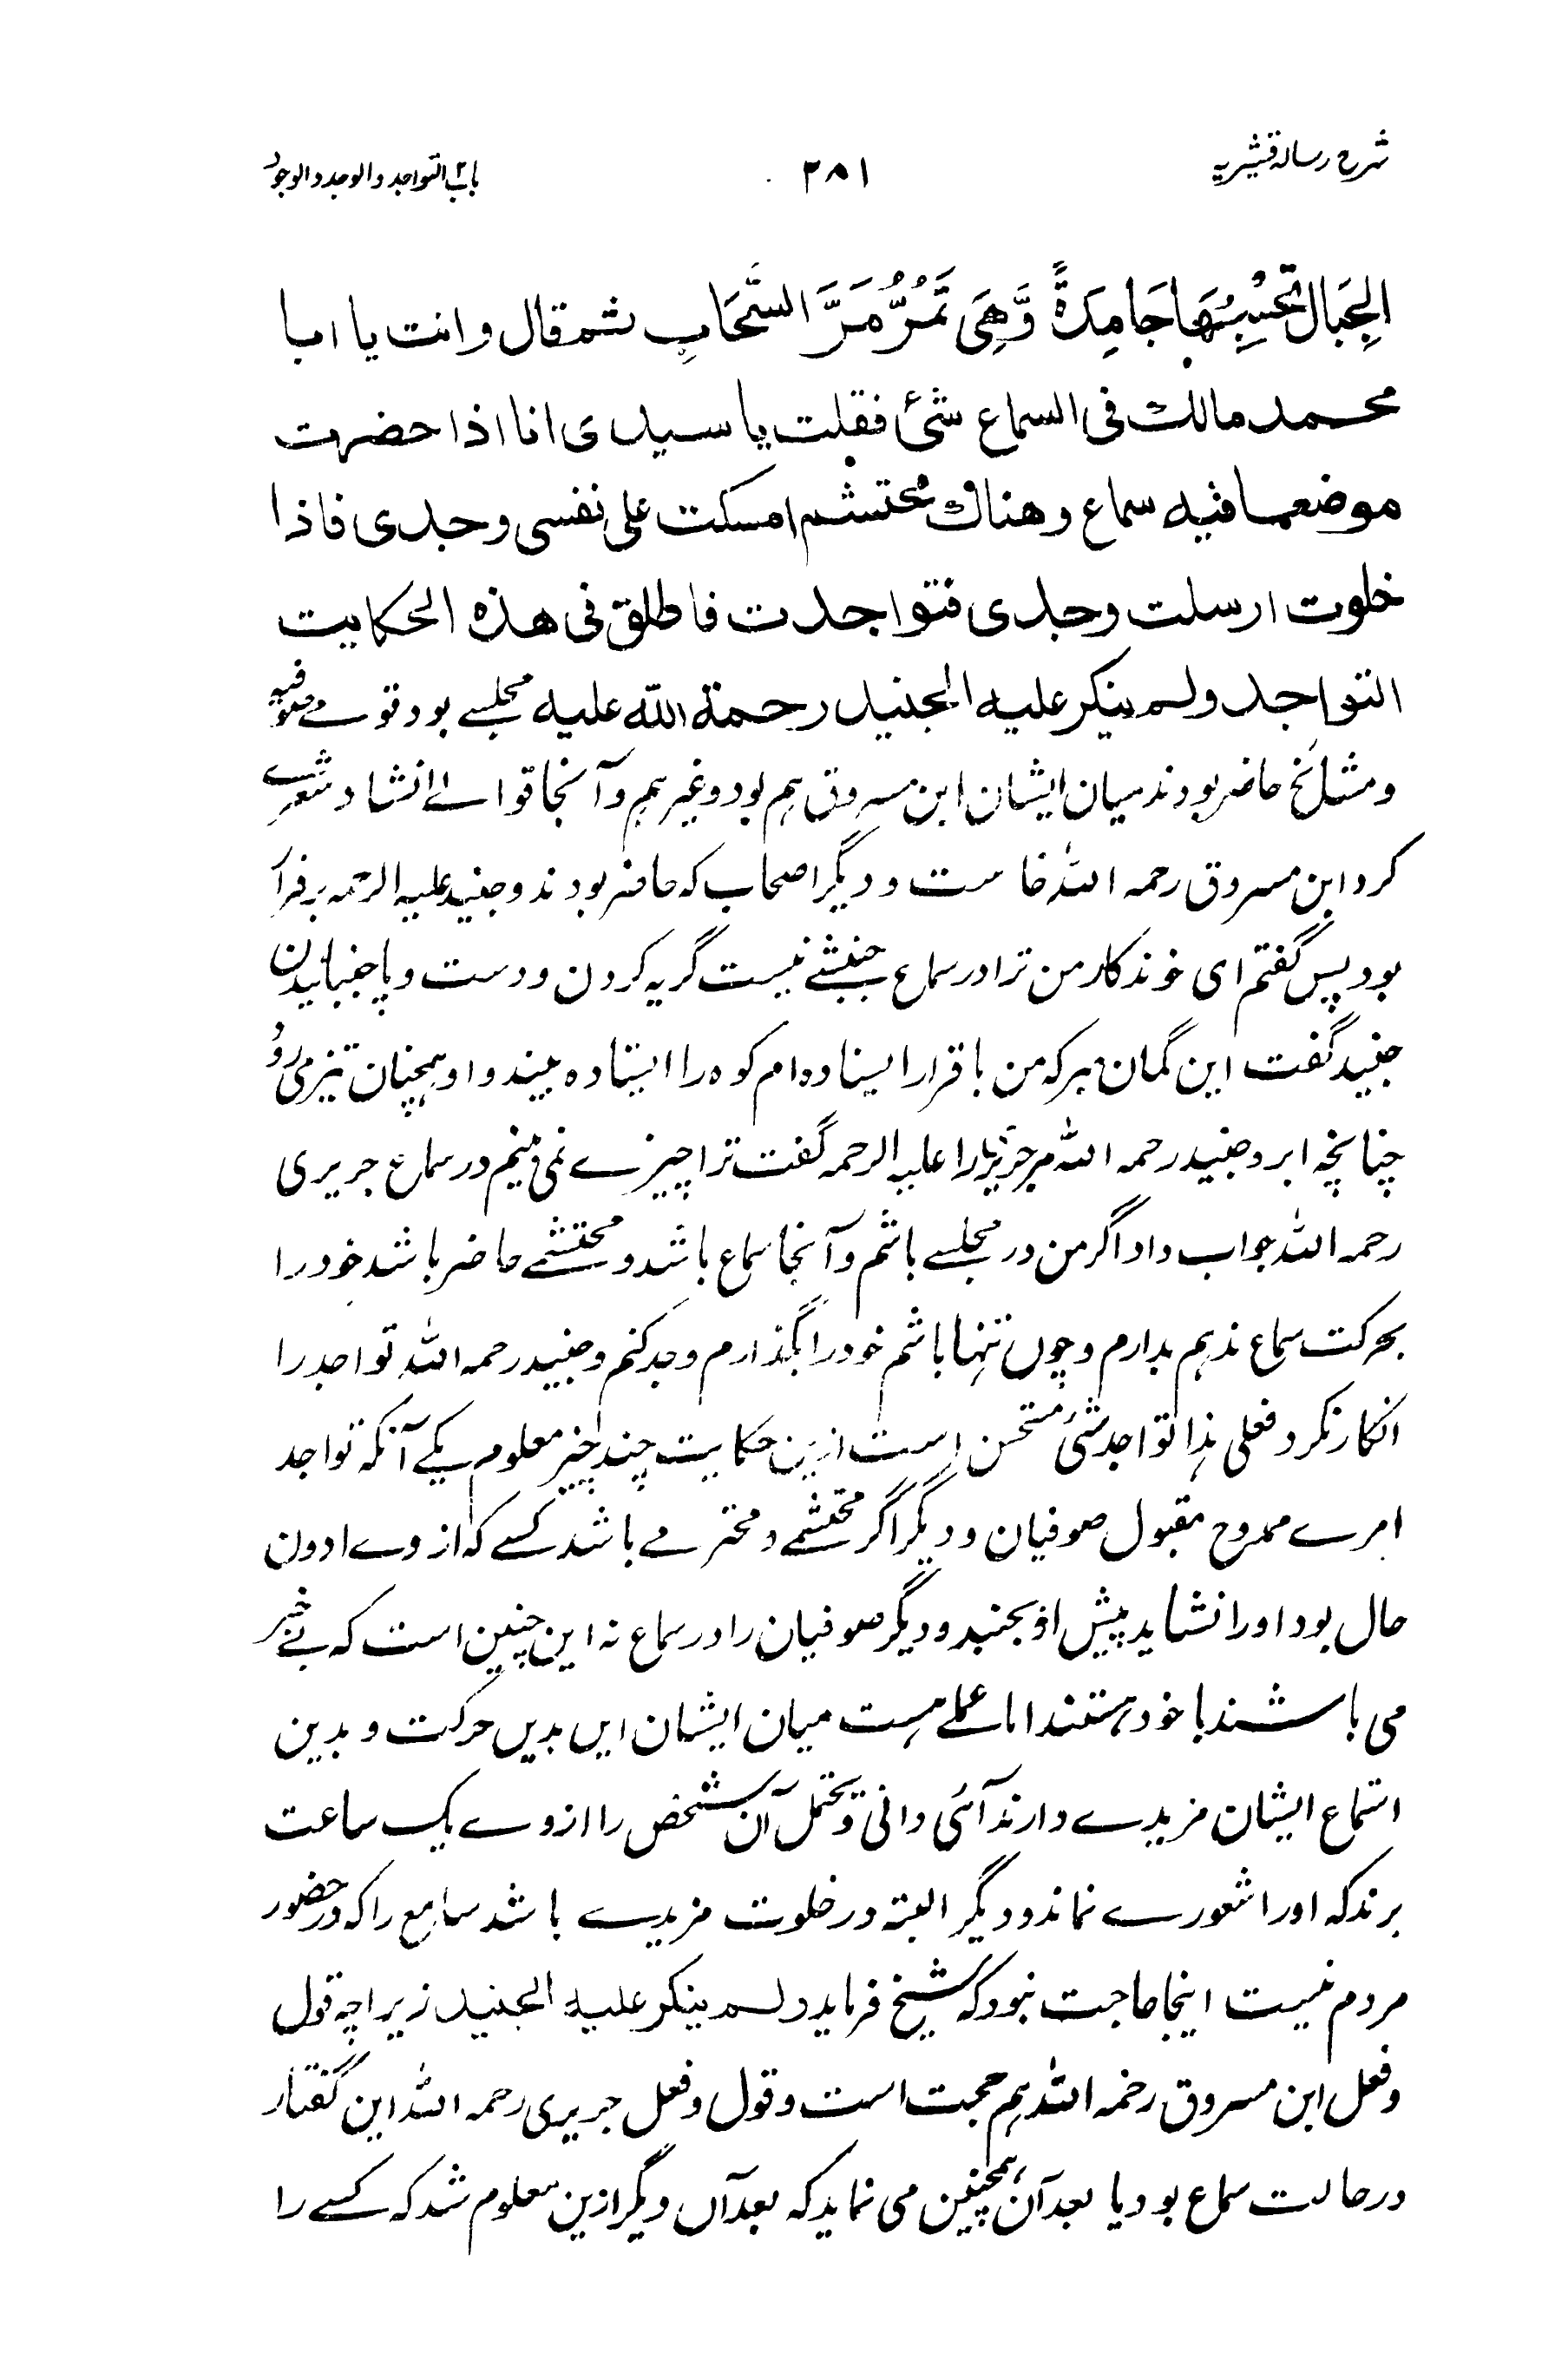 شرح رسالہ قشیریہ
۲۸۱
باب التواجد والوجد والوجود
الجِبَالَ تَحْسَبُهَا جَامِدَةً وَّهِیَ تَمُرُّ مَرَّ السَّحَابِ ثم قال وانت یا ابا
محمد مالک فی السماع شیٔ فقلت یا سیدی انا اذا حضرت
موضعا فیه سماع وهناک محتشم امسکت علی نفسی وجدی فاذا
خلوت ارسلت وجدی فتواجدت فاطلق فی هذه الحکایت
التواجد ولم ینکر علیه الجنید رحمة الله علیه مجلسے بود قومے صوفیہ
ومشائخ حاضر بودند میان ایشان ابن مسروق ہم بود وغیرہم وآنجا قوالے انشاد شعرے
کرد ابن مسروق رحمہ اللہ خاست و دیگر اصحاب کہ حاضر بودند و جنید علیہ الرحمہ برقرار
بود پس گفتم ای خوندکار من ترا در سماع جنبشے نیست گریہ کردن و دست و پا جنبانیدن
جنید گفت این گمان مبر کہ من با قرار ایستادہ ام کوہ را ایستادہ بیند و او ہمچنان تیز می رود
چنانچہ ابر و جنید رحمہ اللہ مر جریری را علیہ الرحمہ گفت ترا چیزے نمی بینم در سماع جریری
رحمہ اللہ جواب داد اگر من در مجلسے باشم و آنجا سماع باشد و محتشمے حاضر باشد خود را
بحرکت سماع ندہم بدارم و چوں تنہا باشم خود را بگذارم وجد کنم و جنید رحمہ اللہ تواجد را
انکار نکرد فعلی ہذا تواجد شیٔ مستحسن است ازین حکایت چند چیز معلوم یکے آنکہ تواجد
امرے ممدوح مقبول صوفیان و دیگر اگر محتشمے و محترمے باشد کسے کہ از وے ادون
حال بود او را نشاید پیش او بجنبد و دیگر صوفیان را در سماع نہ این چنین است کہ بے خبر
می باشند با خود ہستند اما عملے ہست میان ایشان ایں بدیں حرکت و بدین
استماع ایشان مزیدے دارند آنی دانی و تحمل آن شخص را از وے یک ساعت
برند کہ او را شعورے نماند و دیگر البتہ در خلوت مزیدے باشد سامع را کہ در حضور
مردم نیست اینجا حاجت نبود کہ شیخ فرماید ولم ینکر علیه الجنید زیراچہ قول
و فعل ابن مسروق رحمہ اللہ ہم حجت است و قول و فعل جریری رحمہ اللہ این گفتار
در حالت سماع بود یا بعد آن ہمچنین می نماید کہ بعد آں دیگر ازین معلوم شد کہ کسے را